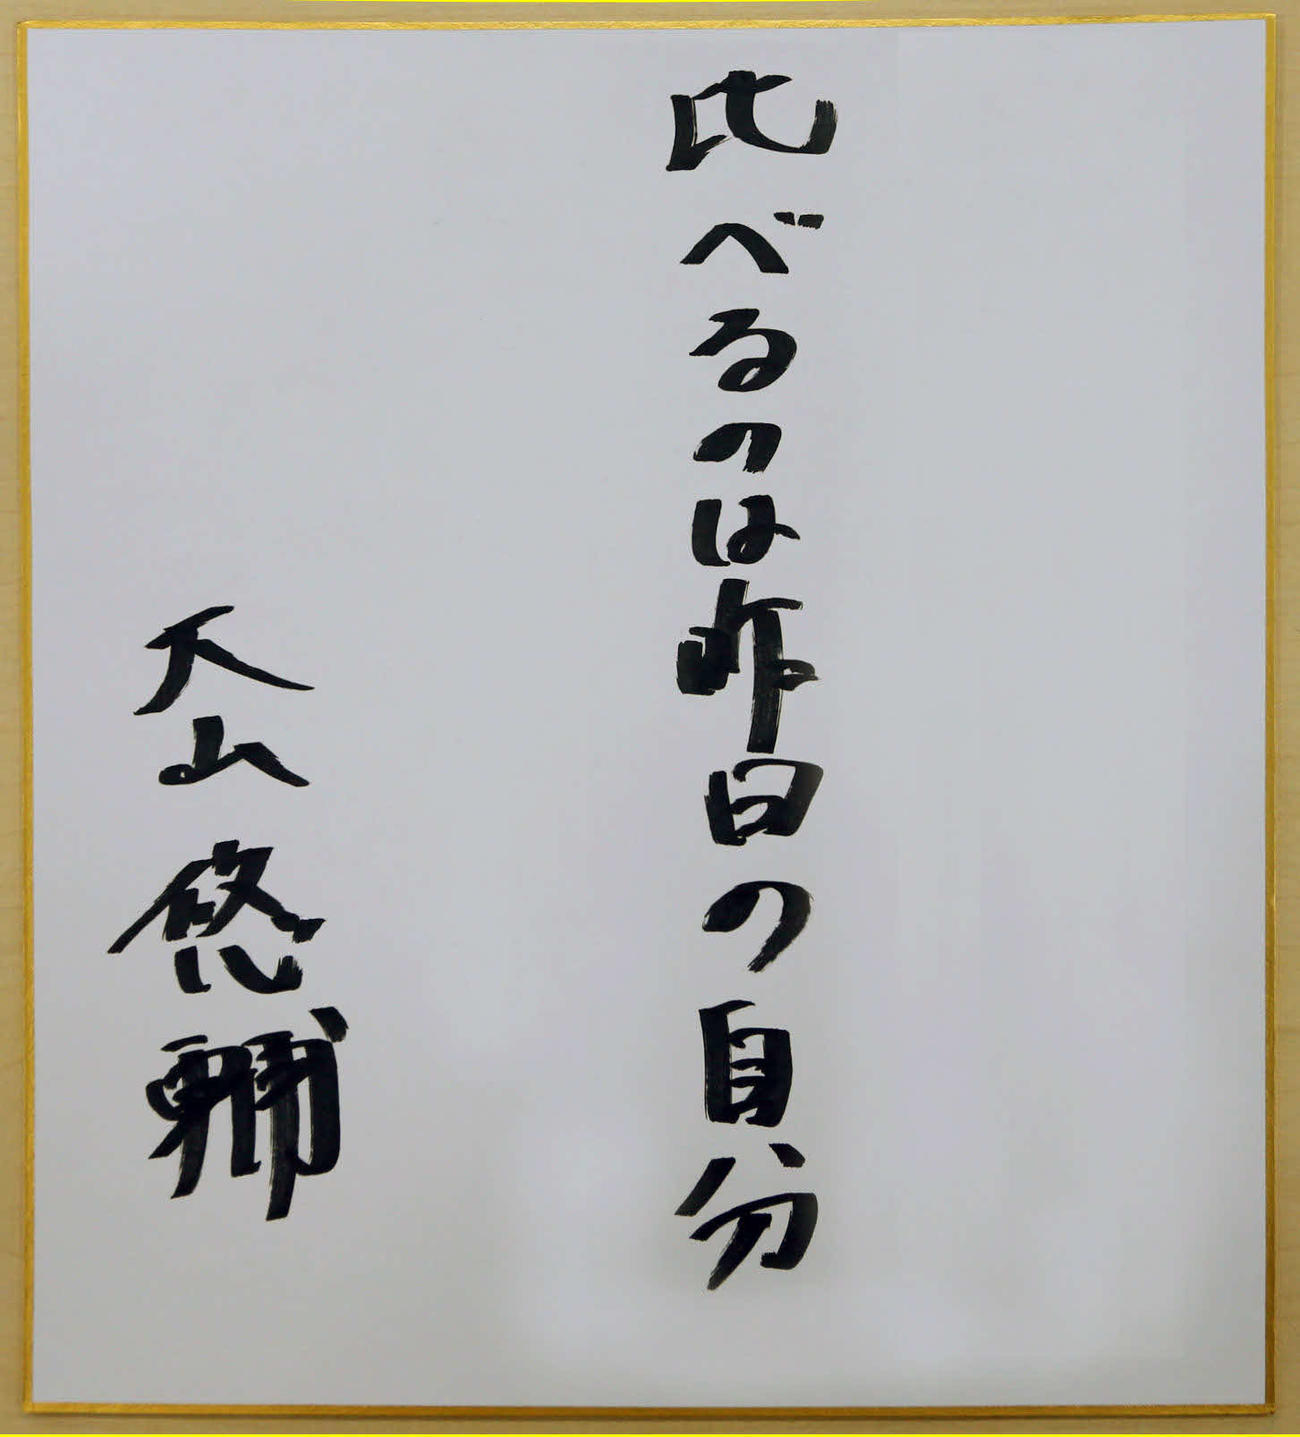 比べるのは昨日の自分
大山悠輔